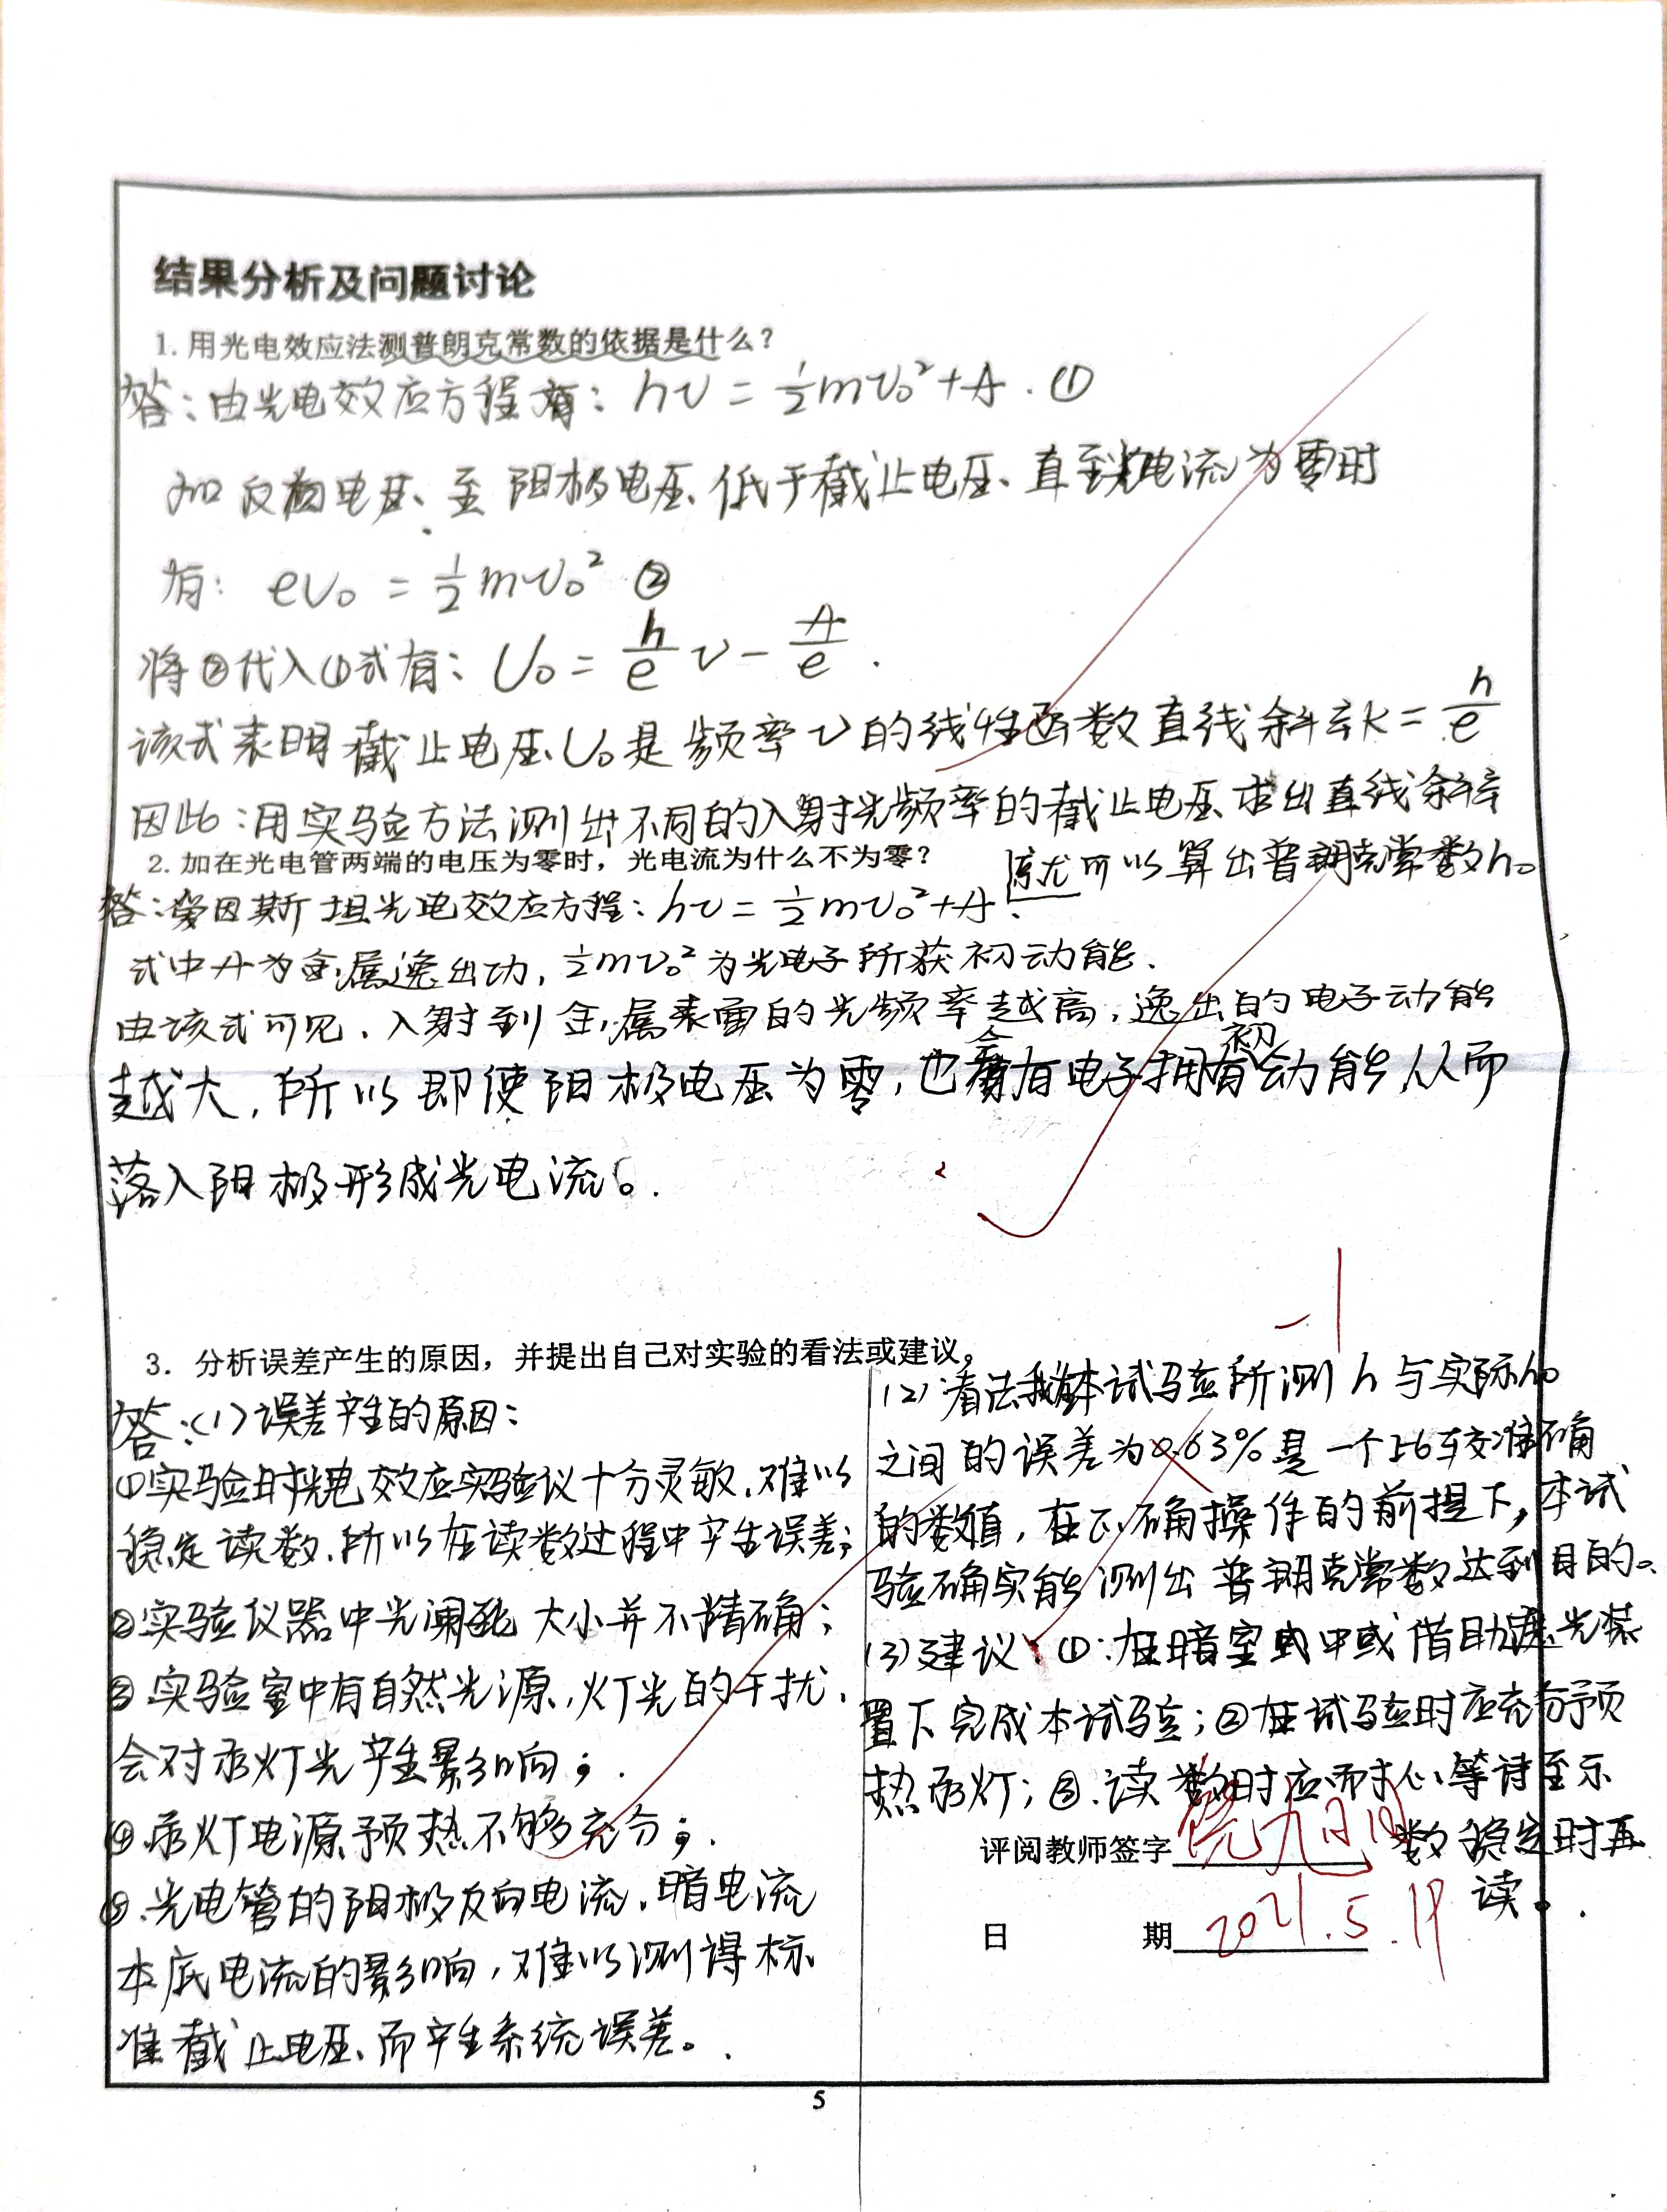 结果分析及问题讨论
1. 用光电效应法测普朗克常数的依据是什么?
答:由光电效应方程有: hν = ½mv₀² + A . ①
加反向电压、至阳极电压低于截止电压、直至光电流为零时
有: eU₀ = ½mv₀² ②
将②代入①式有: U₀ = h/e ν − A/e .
该式表明截止电压U₀是频率ν的线性函数直线斜率K = h/e
因此:用实验方法测出不同的入射光频率的截止电压求出直线斜率
就可以算出普朗克常数h。
2. 加在光电管两端的电压为零时,光电流为什么不为零?
答:爱因斯坦光电效应方程: hν = ½mv₀² + A.
式中A为金属逸出功, ½mv₀²为光电子所获初动能.
由该式可见,入射到金属表面的光频率越高,逸出的电子动能
越大,所以即使阳极电压为零,也会有电子拥有初动能从而
落入阳极形成光电流。
-1
3. 分析误差产生的原因,并提出自己对实验的看法或建议。
答:(1)误差产生的原因:
①实验时光电效应实验仪十分灵敏.难以
稳定读数.所以在读数过程中产生误差;
②实验仪器中光阑孔大小并不精确;
③实验室中有自然光源,灯光的干扰.
会对汞灯光产生影响;.
④.汞灯电源预热不够充分;.
⑤.光电管的阳极反向电流.暗电流
本底电流的影响,难以测得标
准截止电压、而产生系统误差。.
(2)看法本试验所测h与实际h₀
之间的误差为0.63%是一个比较准确
的数值,在正确操作的前提下,本试
验确实能测出普朗克常数达到目的。
(3)建议:①:在暗室中或借助遮光装
置下完成本试验;②在试验时应充分预
热汞灯;③.读数时应耐心等待至示
数稳定时再
读。.
评阅教师签字
日 期 2021.5.19
5